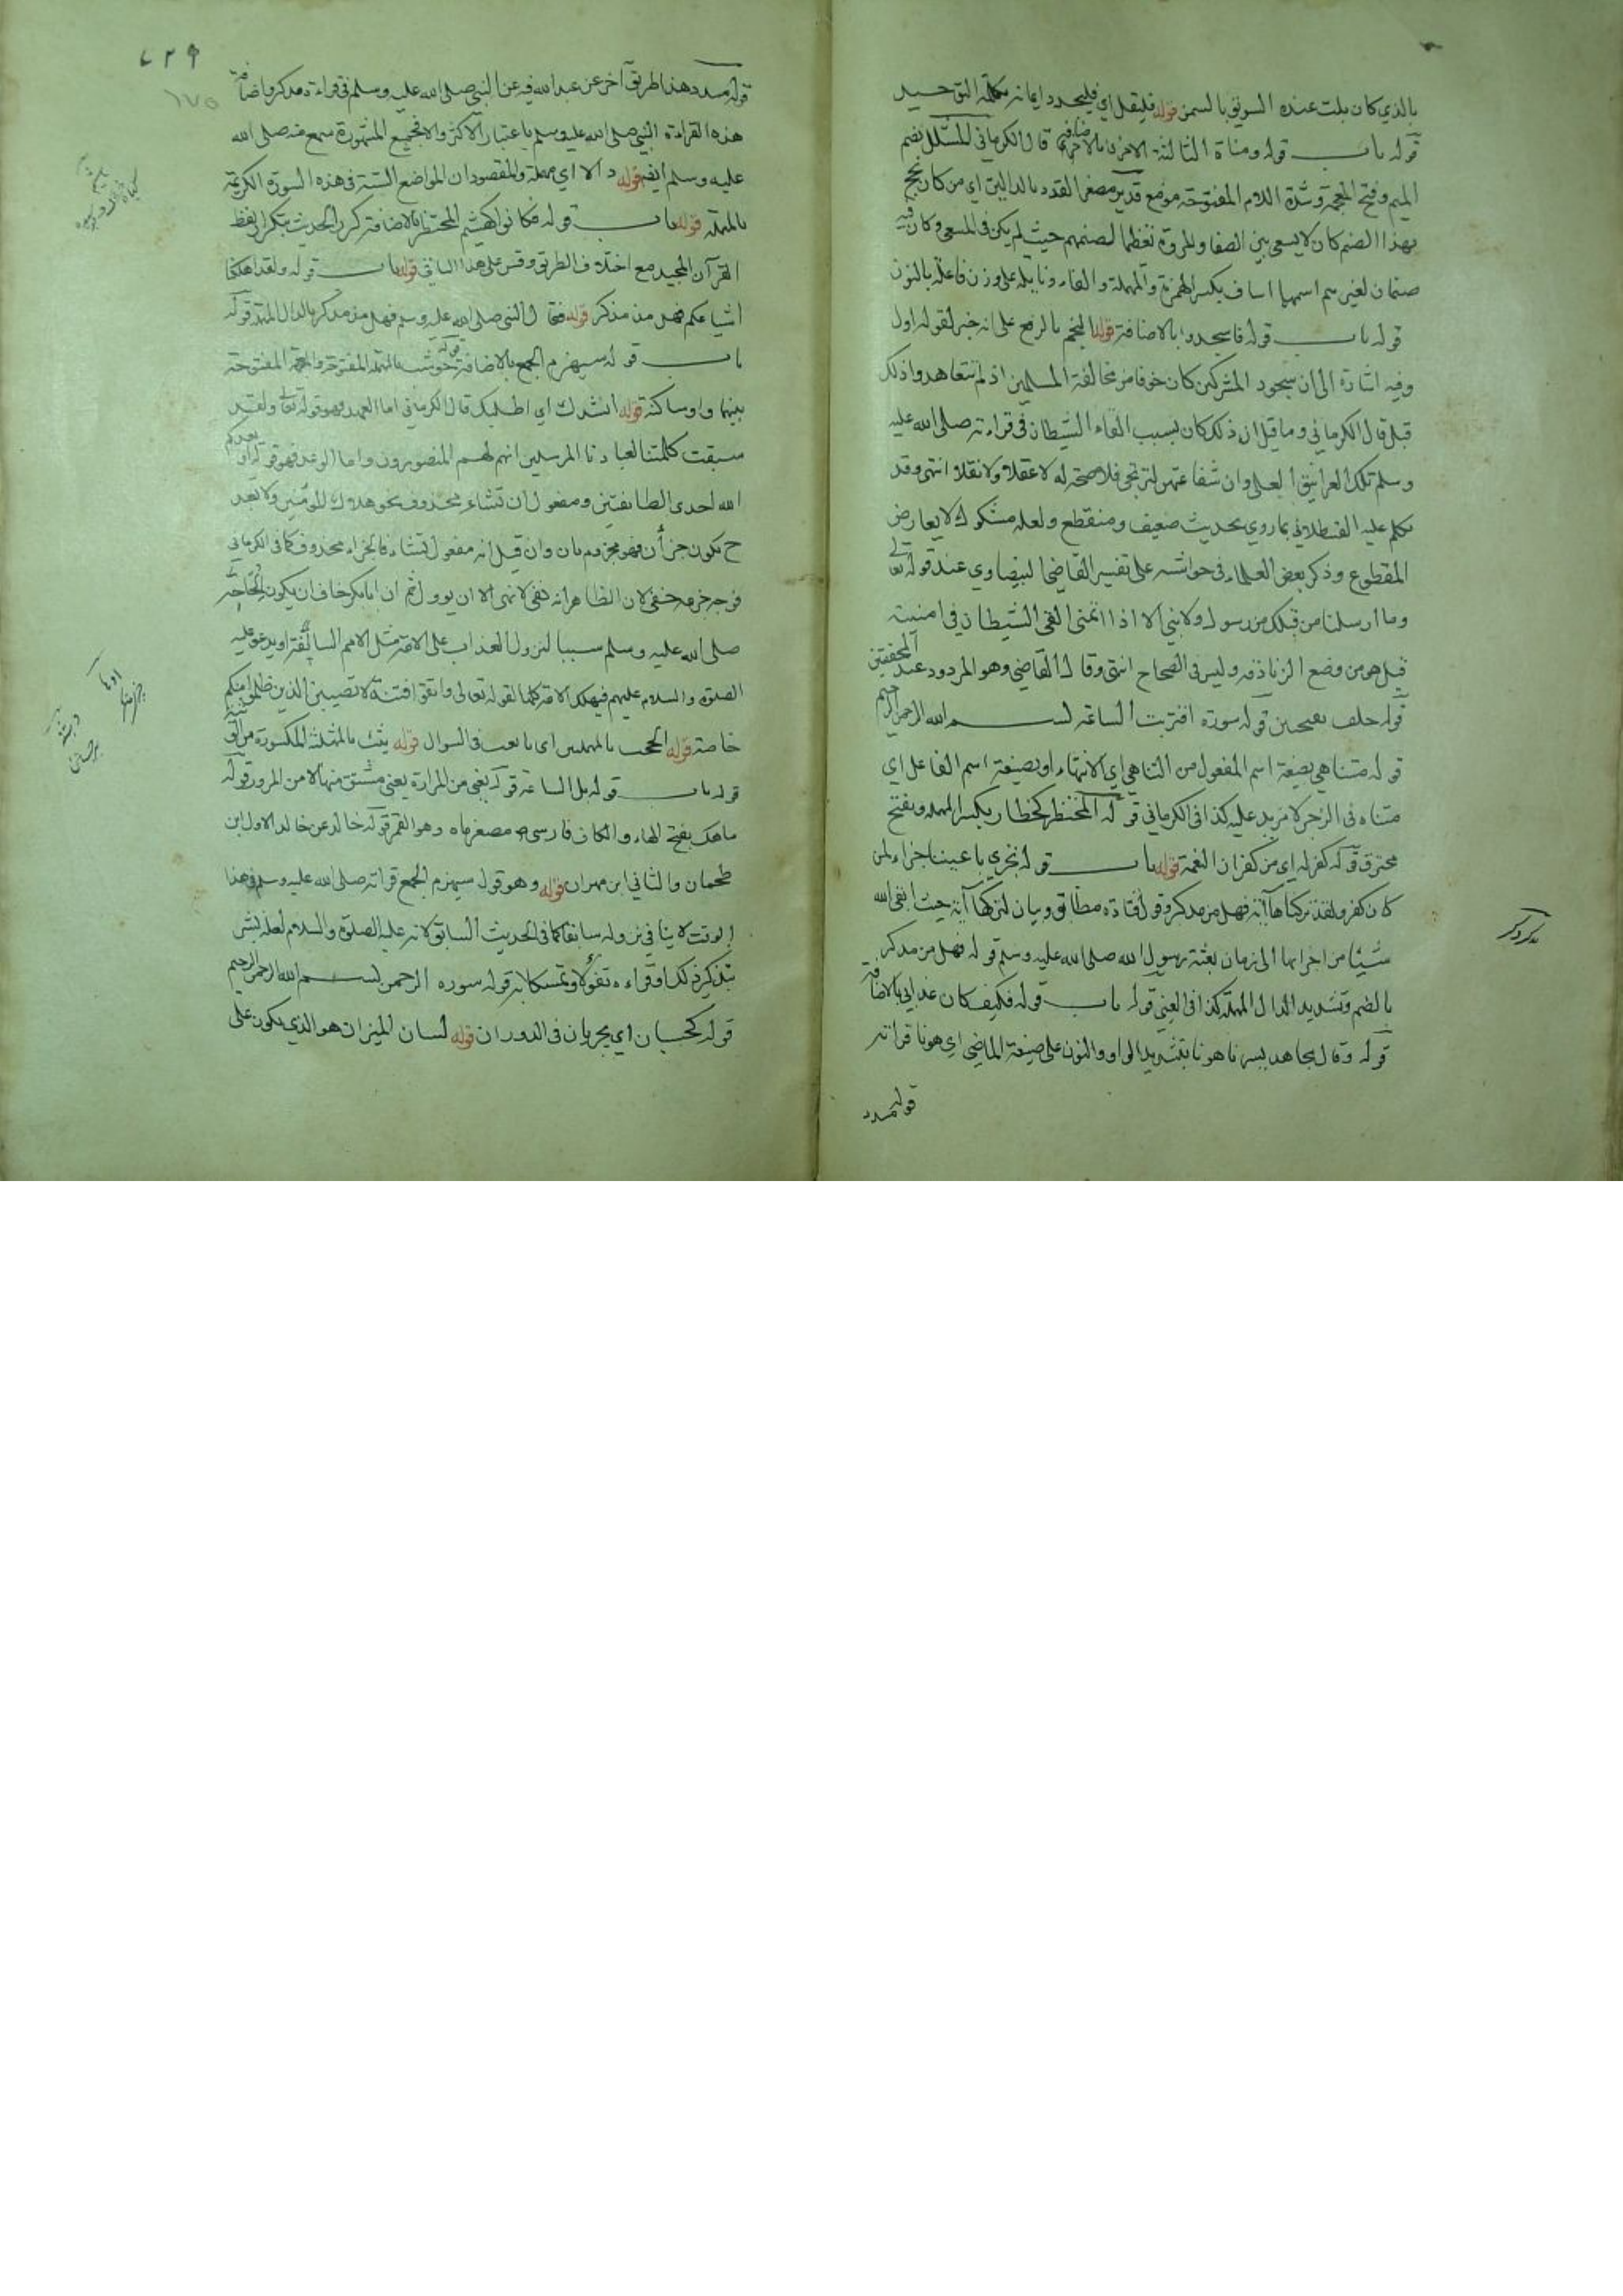 بالذي كان يلت عنده السويق بالسمن قوله فليقل اي فليجدد ايمانه بكلمة التوحيد
قوله باب قوله ومناة الثالثة الاخرى بالاضافة قال الكرماني المشلل بضم
الميم وفتح المعجمة وشدة اللام المفتوحة موضع قديد مصغر القدد بالدالين اي من كان يحج
بهذا الصنم كان لا يسعى بين الصفا والمروة تعظيما لصنمهم حيث لم يكن في المسعى وكان فيه
صنمان لغيرهم اسمهما اساف بكسر الهمزة والمهملة والفاء ونايلة على وزن فاعلة بالنون
قوله باب قوله فاسجدوا بالاضافة قوله النجم بالرفع على انه خبر لقوله اول
وفيه اشارة الى ان سجود المشركين كان خوفا من مخالفة المسلمين اذ لم تتعاهدوا ذلك
قبل قال الكرماني وما قيل ان ذلك كان بسبب القاء الشيطان في قراءته صلى الله عليه
وسلم تلك الغرانيق العلى وان شفاعتهن لترتجى فلا صحة له لا عقلا ولا نقلا انتهى وقد
تكلم عليه القسطلاني بما روي بحديث ضعيف ومنقطع ولعله مشكوك لا يعارض
المقطوع وذكر بعض العلماء في حواشيه على تفسير القاضي البيضاوي عند قوله تعالى
وما ارسلنا من قبلك من رسول ولا نبي الا اذا تمنى القى الشيطان في امنيته
قيل هو من وضع الزنادقة وليس في الصحاح انتهى وقال القاضي وهو المردود عند المحققين
قوله حلف بعيحين قوله سورة اقتربت الساعة بسم الله الرحمن الرحيم
قوله متناهي بصيغة اسم المفعول من التناهي اي الانتهاء او بصيغة اسم الفاعل اي
متناه في الزجر لا مزيد عليه كذا في الكرماني قوله المحتظر كحظار بكسر المهملة وبفتح
محترق قوله كفر له اي من كفران النعمة قوله باب قوله تجري باعيننا جزاء لمن
كان كفر ولقد تركناها آية فهل من مدكر وقول قتادة مطابق وبيان لتركها آية حيث ابقى الله
شيئا من اجزائها الى زمان بعثة رسول الله صلى الله عليه وسلم قوله فهل من مدكر
بالضم وتشديد الدال المهملة كذا في العيني قوله باب قوله فكيف كان عذابي بالاضافة
قوله وقال مجاهد يسرنا هونا بتشديد الواو والنون على صيغة الماضي اي هونا قراءته
قوله مسدد
مدكر
٤٢٩
١٧٥
قوله مسدد هذا طريق آخر عن عبد الله فيه عن النبي صلى الله عليه وسلم في قراءة مدكر واضافة
هذه القراءة النبي صلى الله عليه وسلم باعتبار الاكثر والا فجميع المشهورة سمع منه صلى الله
عليه وسلم ايضا قوله دالا اي مهملة والمقصود ان المواضع الستة في هذه السورة الكريمة
بالمهملة قوله باب قوله فكانوا كهشيم المحتظر بالاضافة كرر الحديث بتكرار لفظ
القرآن المجيد مع اختلاف الطريق وقس على هذا الباقي قوله باب قوله ولقد اهلكنا
اشياعكم فهل من مذكر قوله فقال النبي صلى الله عليه وسلم فهل من مدكر بالدال المهملة قوله
باب قوله سيهزم الجمع بالاضافة قوله حوشب بالمهملة المفتوحة والمعجمة المفتوحة
بينهما واو ساكنة قوله انشدك اي اطلبك قال الكرماني اما العهد فهو قوله تعالى ولقد
سبقت كلمتنا لعبادنا المرسلين انهم لهم المنصورون واما الوعد فهو قوله واذ يعدكم
الله احدى الطائفتين ومفعول ان تشاء محذوف نحو هلاك المؤمنين ولا تعبد
ح يكون جزاء فهو مجزوم بان وان قيل انه مفعول تشاء فالجزاء محذوف كما في الكرماني
فوجه جزمه خفي لان الظاهر انه نفي لا نهي الا ان يؤول ثم ان ابا بكر خاف ان يكون الحاحه
صلى الله عليه وسلم سببا لنزول العذاب على الامة مثل الامم السالفة او يدعو عليه
الصلوة والسلام عليهم فيهلك الامة كلها لقوله تعالى واتقوا فتنة لا تصيبن الذين ظلموا منكم
خاصة قوله الححت بالمهملتين اي بالغت في السوال قوله يثب بالمثلثة المكسورة من الوثبة
قوله باب قوله بل الساعة قوله يعني من المرارة يعني مشتق منها لا من المرور قوله
ماهك بفتح الهاء والكاف فارسي مصغر ماه وهو القمر قوله خالد عن خالد الاول ابن
طحمان والثاني ابن مهران قوله وهو قول سيهزم الجمع قراءته صلى الله عليه وسلم في هذا
الوقت لا ينافي نزوله سابقا كما في الحديث السابق لانه عليه الصلوة والسلام لعله بشر
بتذكير ذلك او قراءه تفؤلا وتمسكا به قوله سوره الرحمن بسم الله الرحمن الرحيم
قوله كحسبان اي يجريان في الدوران قوله لسان الميزان هو الذي يكون على